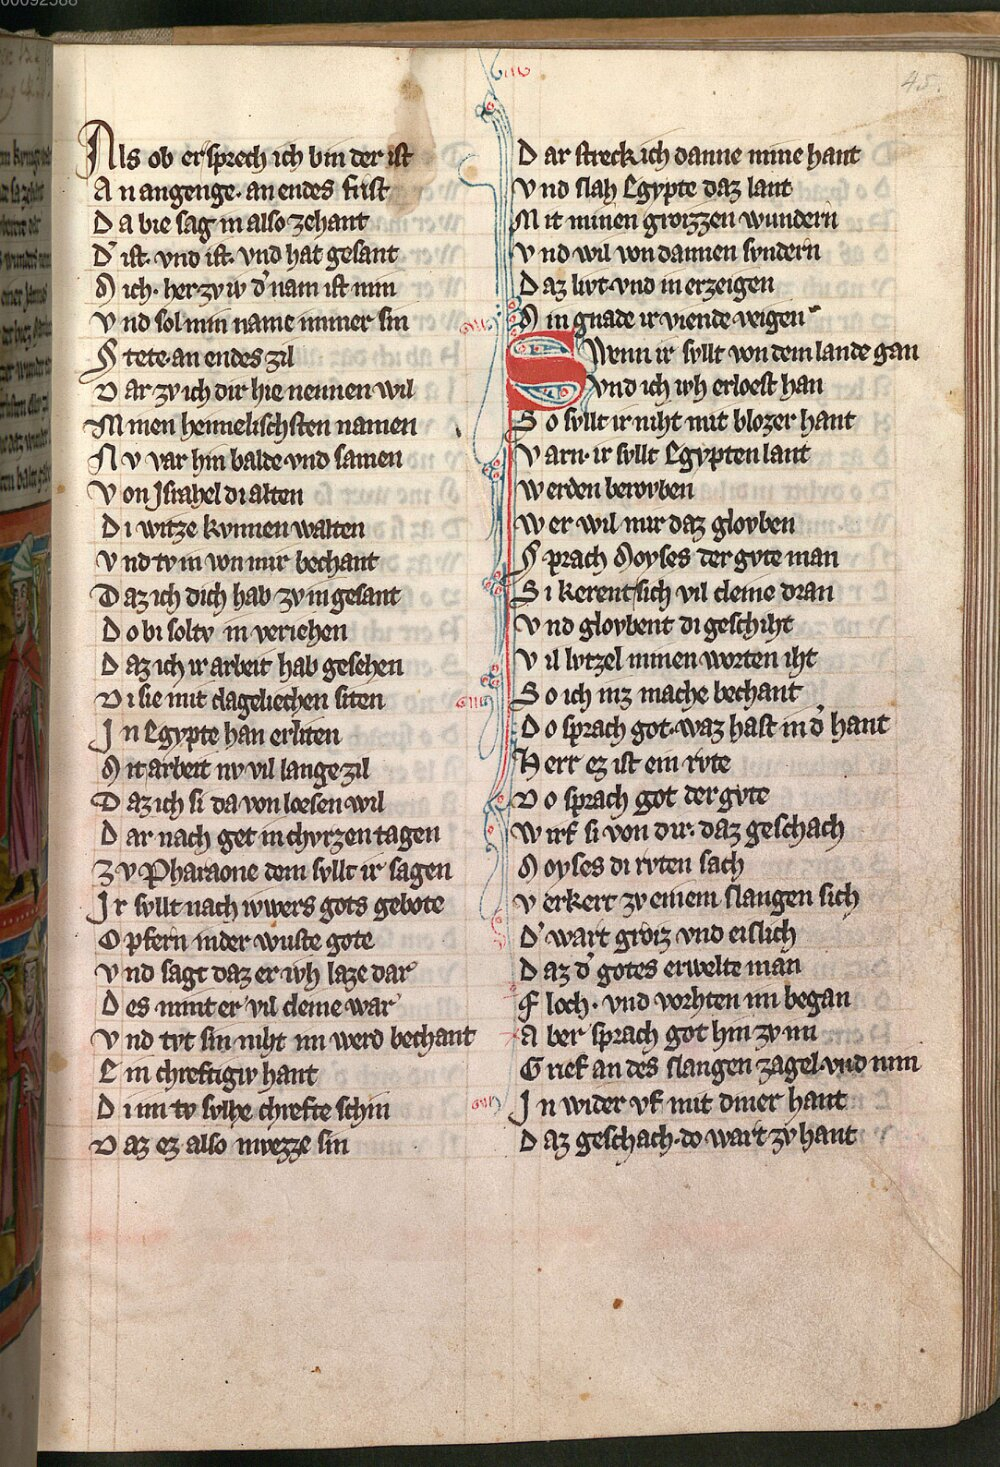 00092588
45.
Als ob er sprech ich bin der ist
An angenge. an endes frist
Da bie sag in also zehant
D' ist. vnd ist. vnd hat gesant
Mich. her. zv iv d' nam ist min
Vnd sol min name immer sin
Stete. an endes zil
Dar zv ich dir hie nennen wil
Minen heimelischsten namen
Nv var hin balde vnd samen
Von Israhel di alten
Di witze kvnnen walten
Vnd tv in von mir bechant
Daz ich dich hab zv in gesant
Do bi soltv in veriehen
Daz ich ir arbeit hab gesehen
Di sie mit clageliechen siten
In Egypte han erliten
Mit arbeit nv vil lange zil
Daz ich si da von loesen wil
Dar nach get in chvrzen tagen
Zv Pharaone dem svllt ir sagen
Ir svllt nach iwers gots gebote
Opfern in der wuste gote
Vnd sagt daz er ivh laze dar
Des nimt er vil cleine war
Vnd tvt sin niht im werd bechant
Ein chreftigiv hant
Di im tv solhe chrefte schin
Daz ez also mvezze sin
Dar streck ich danne mine hant
Vnd slah Egypte daz lant
Mit minen groizzen wundern
Vnd wil von dannen svndern
Daz livt. vnd in erzeigen
Min gnade ir viende veigen
Swenn ir svllt von dem lande gan
Vnd ich ivh erloest han
So svllt ir niht mit blozer hant
Varn. ir svllt Egypten lant
Werden berovben
Wer wil mir daz glovben
Sprach Moyses der gvte man
Si kerent sich vil cleine dran
Vnd glovbent di geschiht
Vil lvtzel minen worten iht
So ich inz mache bechant
Do sprach got. waz hast in d' hant
Herr ez ist ein rvte
Do sprach got der gvte
Wirf si von dir. daz geschach
Moyses di rvten sach
Verkert zv einem slangen sich
D' wart groiz vnd eislich
Daz d' gotes erwelte man
Floch. vnd vorhten im began
Aber sprach got hin zv im
Grief an des slangen zagel. vnd nim
In wider vf mit diner hant
Daz geschach. do wart zv hant